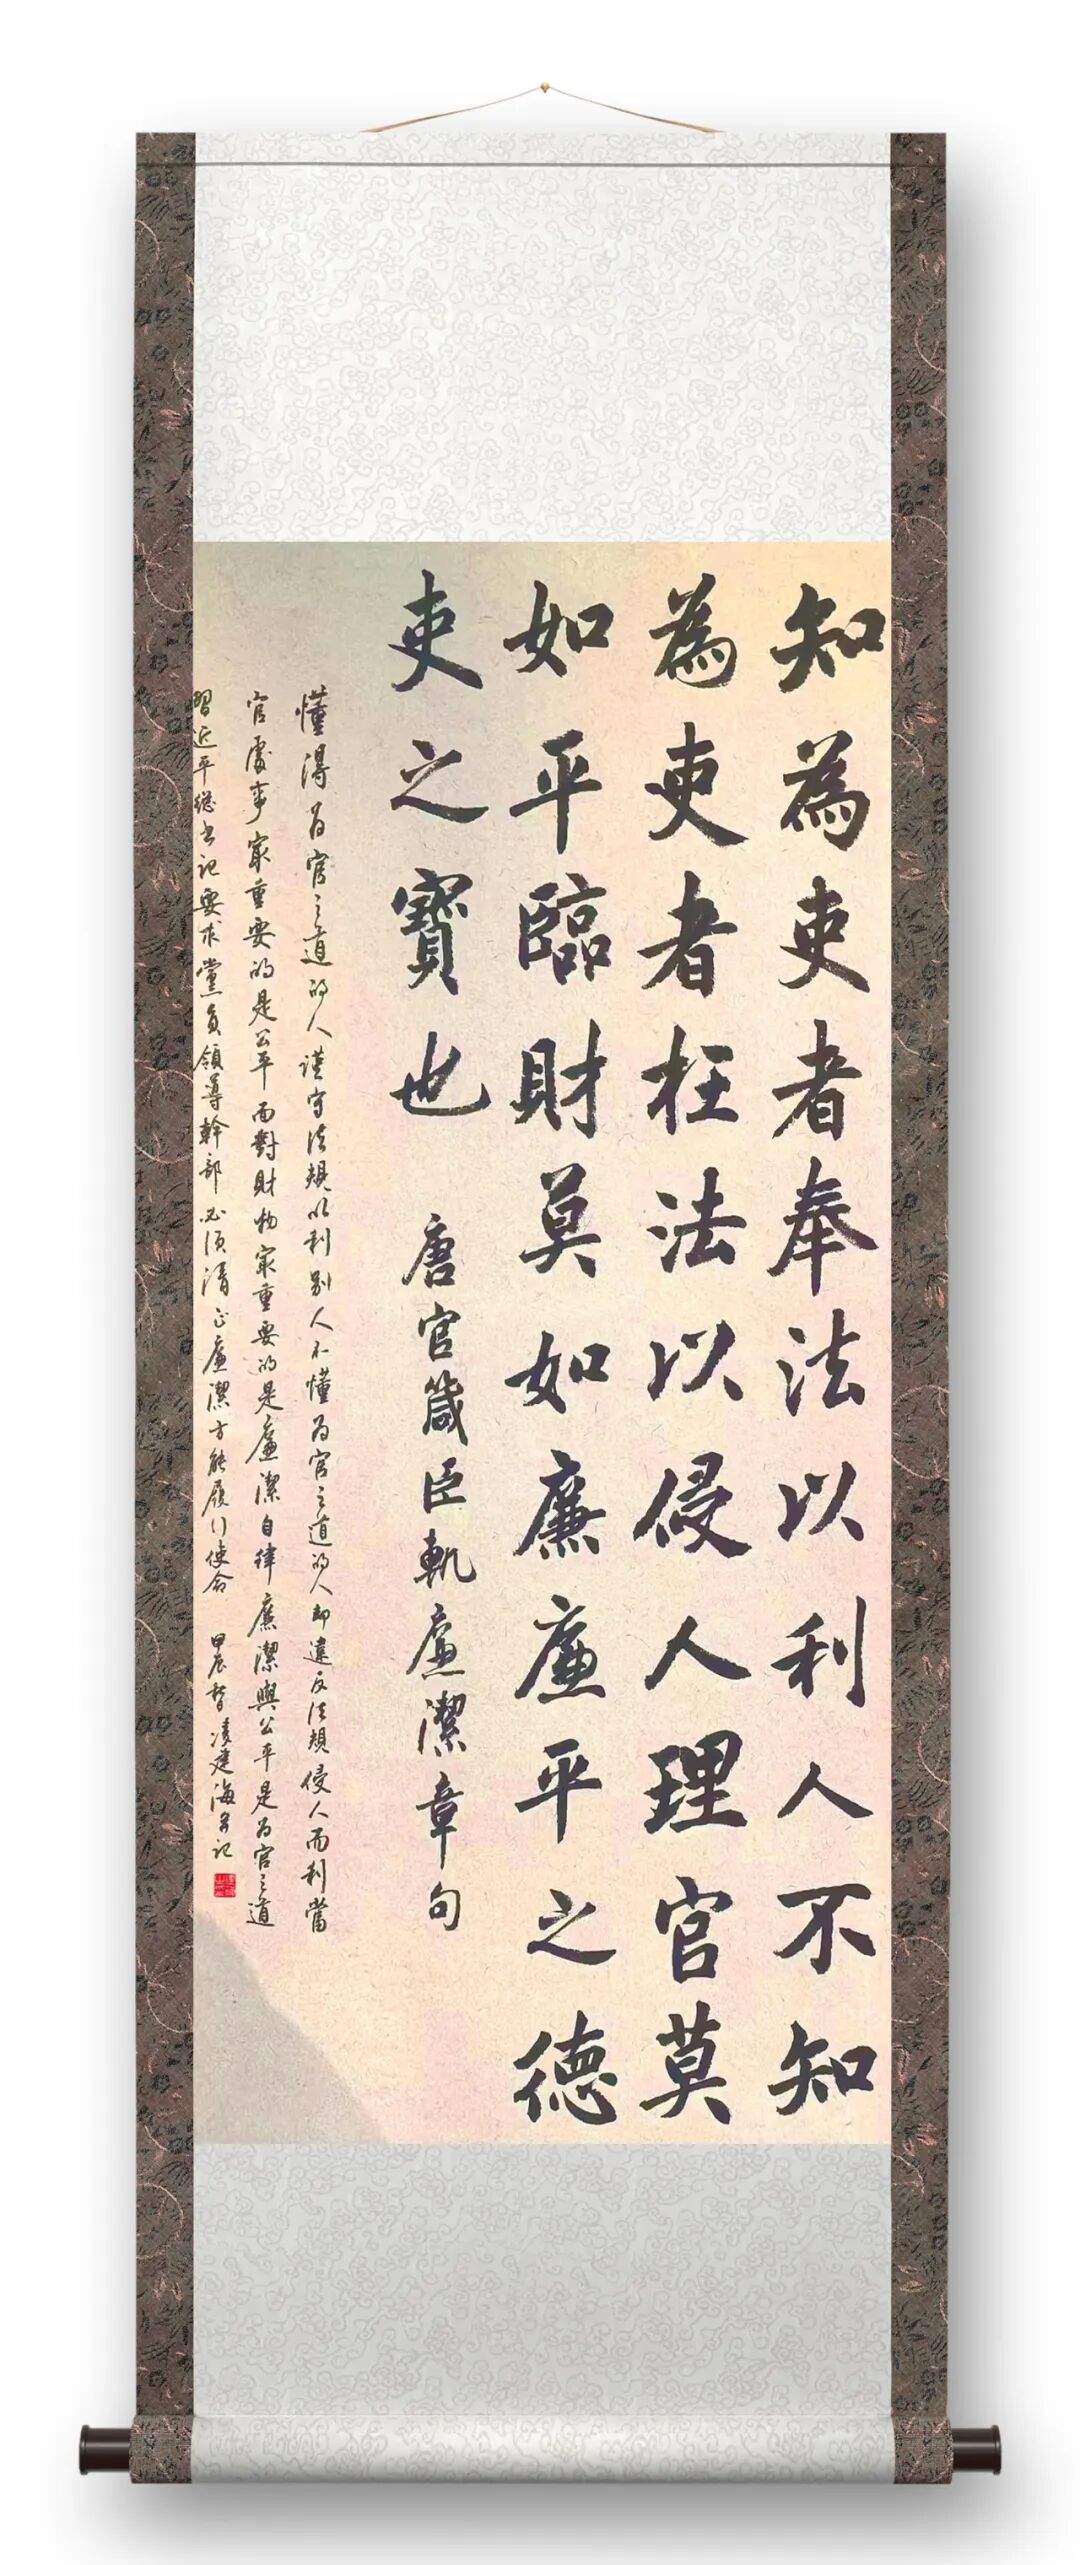 知為吏者奉法以利人不知
為吏者枉法以侵人理官莫
如平臨財莫如廉廉平之德
吏之寶也 唐官箴臣軌廉潔章句
懂得为官之道的人谨守法規以利别人不懂为官之道的人却違反法規侵人而利當
官處事最重要的是公平面對財物最重要的是廉潔自律廉潔與公平是为官之道
習近平總书记要求黨員領導幹部必须清正廉潔方能履行使命 甲辰 凌建海 记